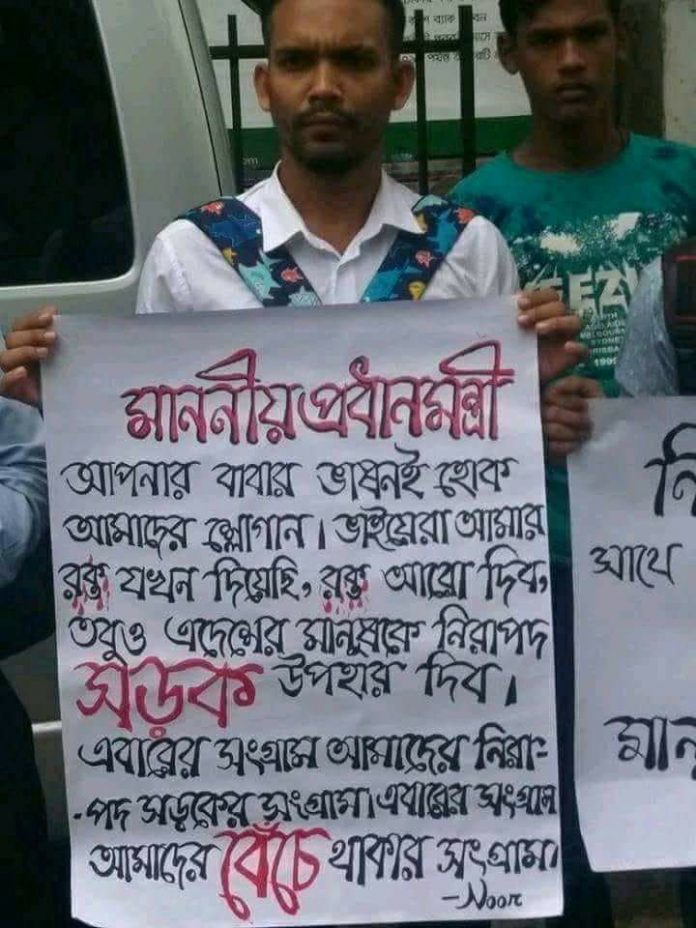 মাননীয় প্রধানমন্ত্রী
আপনার বাবার ভাষনই হোক
আমাদের স্লোগান। ভাইয়েরা আমার
রক্ত যখন দিয়েছি, রক্ত আরো দিব,
তবুও এদেশের মানুষকে নিরাপদ
সড়ক উপহার দিব।
এবারের সংগ্রাম আমাদের নিরা-
-পদ সড়কের সংগ্রাম। এবারের সংগ্রাম
আমাদের বেঁচে থাকার সংগ্রাম।
-Noor
নি
সাথে
মান
EEZY
1990